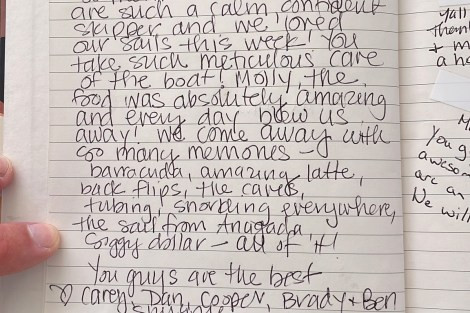 are such a calm, confident
skipper and we loved
our sails this week! You
take such meticulous care
of the boat! Molly, the
food was absolutely amazing
and every day blew us
away! We come away with
so many memories –
barracuda, amazing latte,
back flips, the caves,
tubing, snorkling everywhere,
the sail from Anagada,
Soggy dollar – all of it!
You guys are the best
♡ Carey, Dan, Cooper, Brady + Ben
yall
Than
+ m
a ha
M
You g
aweso
are an
We will